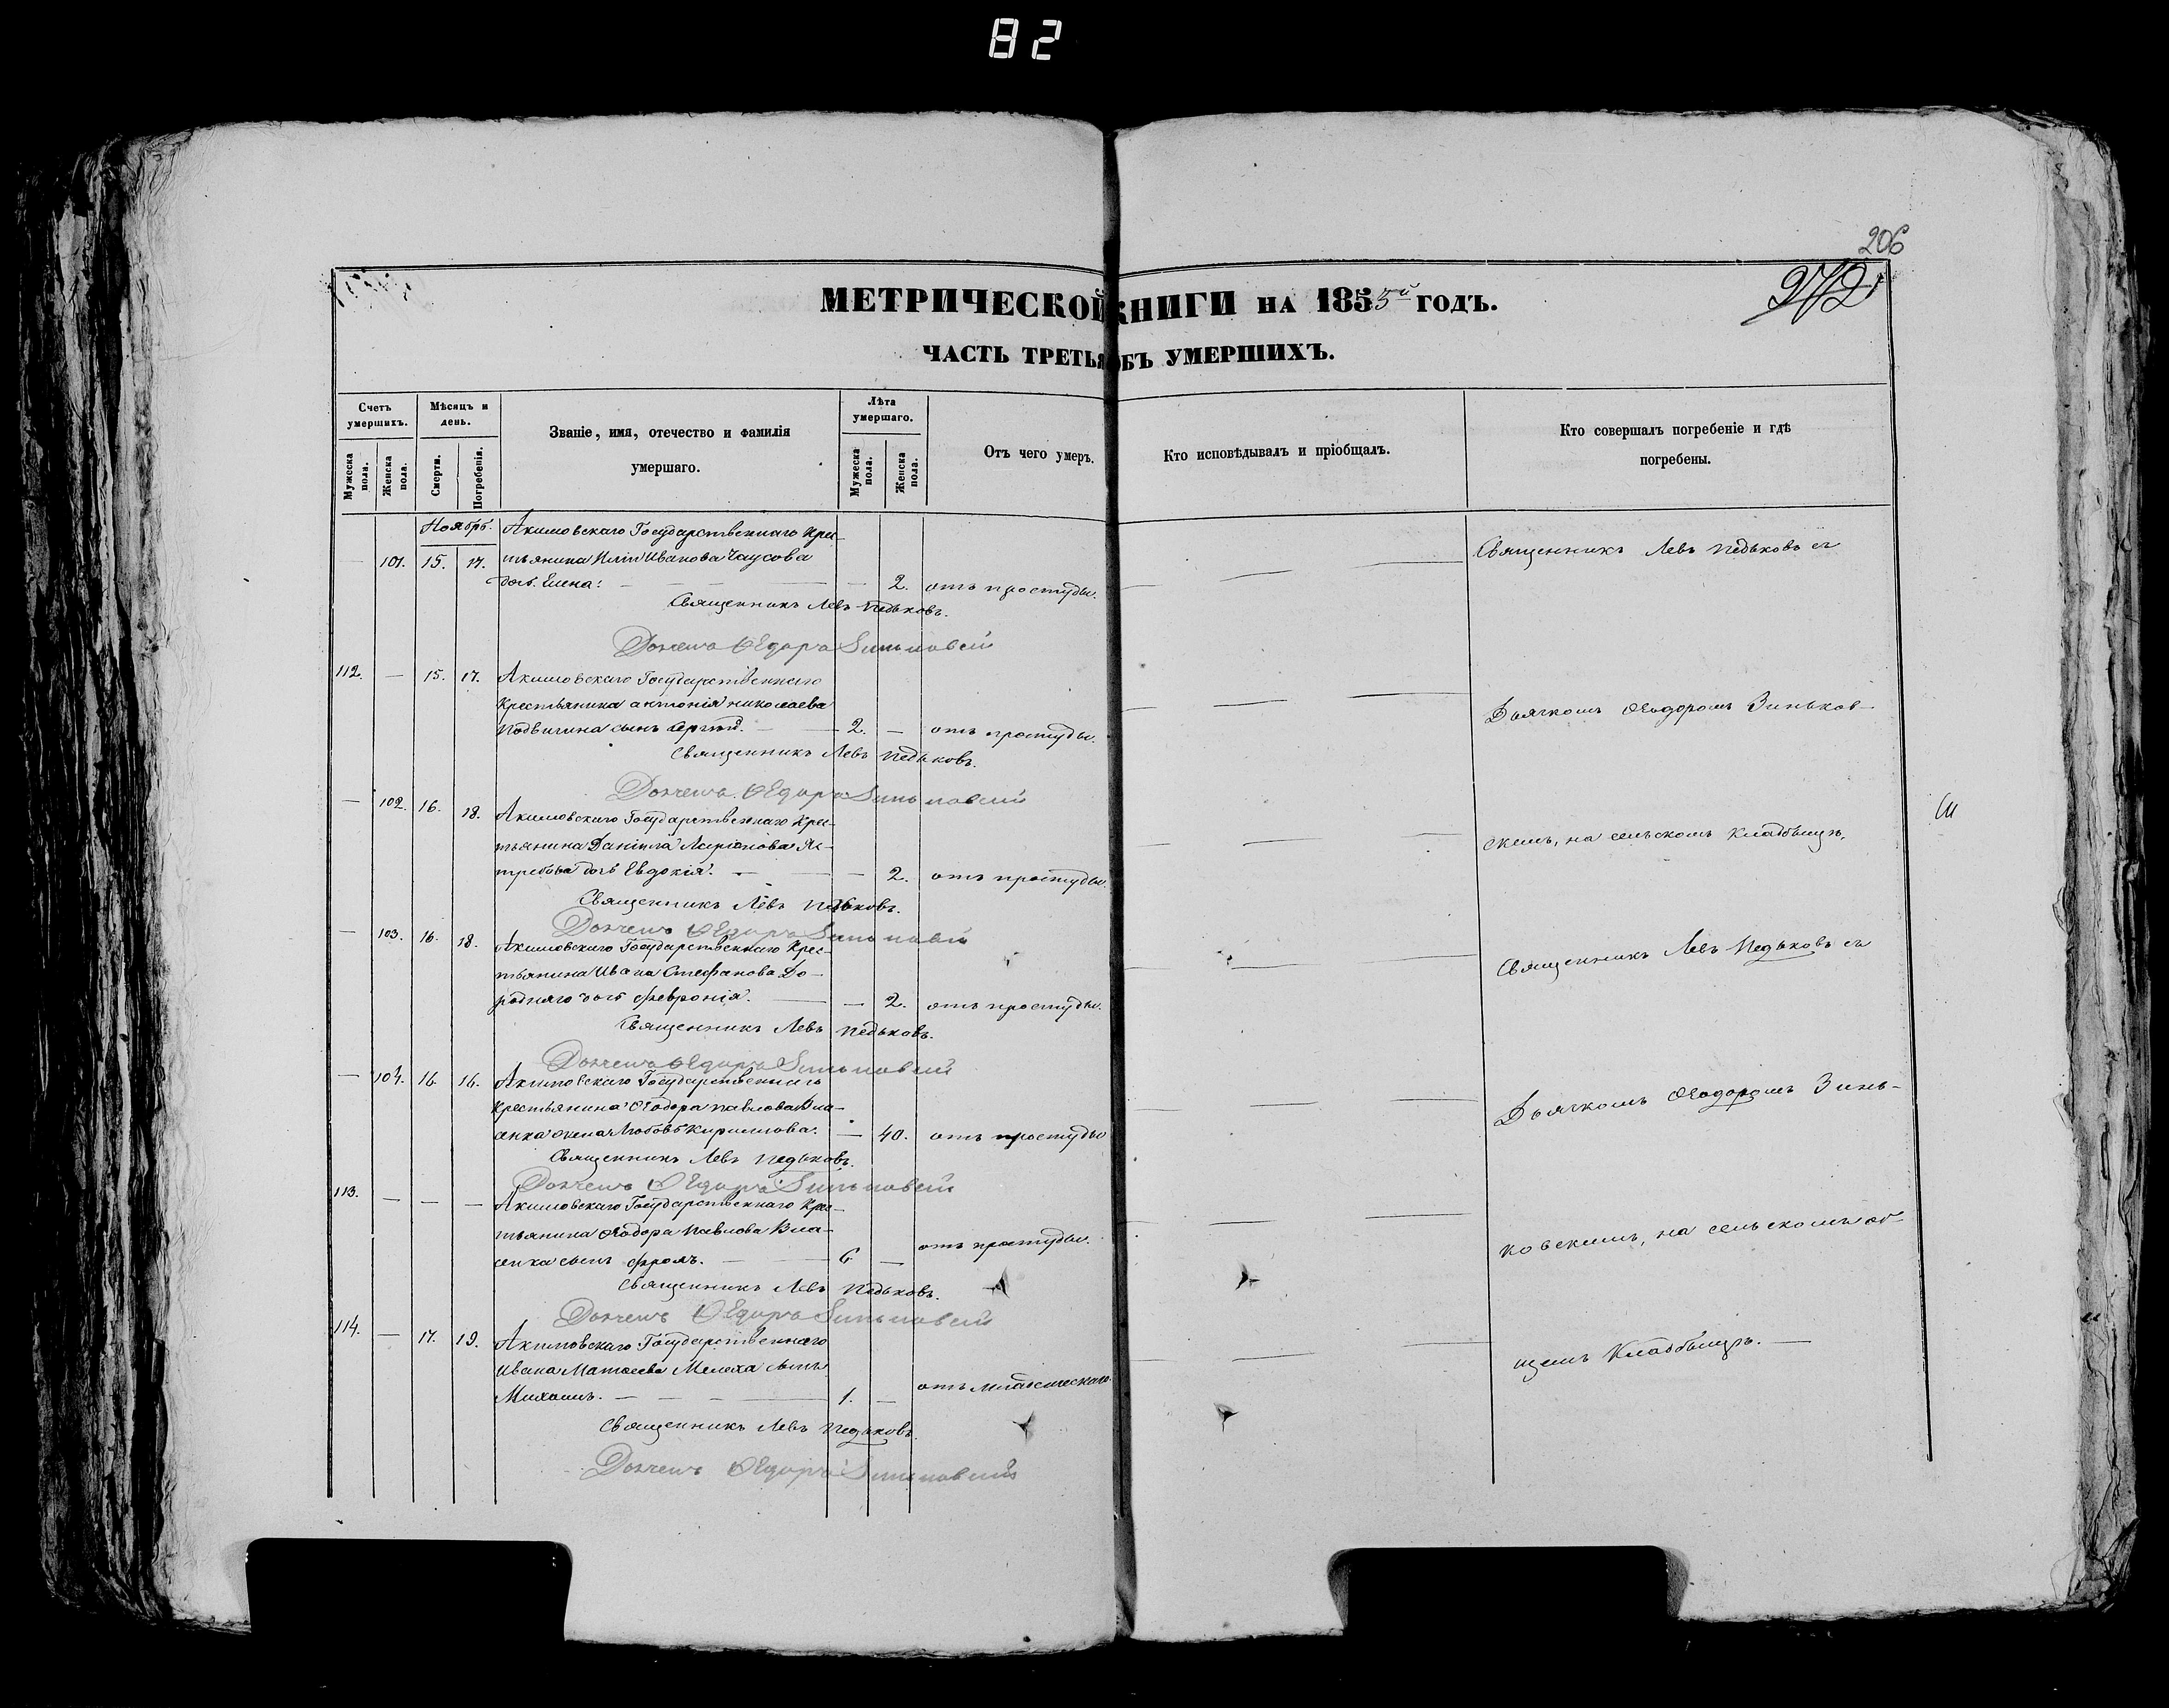 82
206
272
МЕТРИЧЕСКОЙ КНИГИ НА 1855й ГОДЪ.
ЧАСТЬ ТРЕТЬЯ ОБЪ УМЕРШИХЪ.
Счетъ умершихъ.
Мужеска полн.
Женска пола.
Мѣсяцъ и день.
Смерти.
Погребенія.
Званіе, имя, отечество и фамилія
умершаго.
Лѣта умершаго.
Мужеска пола.
Женска пола.
Отъ чего умеръ.
Кто исповѣдывалъ и пріобщалъ.
Кто совершалъ погребеніе и гдѣ
погребены.
Ноябрь. Акимовскаго Государственнаго Кре-
— 101. 15. 17. тьянина Иліи Иванова Чаусова
дочь Елена: — — 2. отъ простуды.
Священникъ Левъ Педьковъ.
112. — 15. 17. Акимовскаго Государственнаго
Крестьянина Антонія Николаева
Подвигина сынъ Сергѣй. — 2. — отъ простуды.
Священникъ Левъ Педьковъ.
— 102. 16. 18. Акимовскаго Государственнаго Крес-
тьянина Даніила Ларіонова Яс-
требова дочь Евдокія. — — 2. отъ простуды.
Священникъ Левъ Педьковъ.
— 103. 16. 18. Акимовскаго Государственнаго Крес-
тьянина Ивана Стефанова До-
родняго дочь Февронія. — — 2. отъ простуды.
Священникъ Левъ Педьковъ.
— 104. 16. 16. Акимовскаго Государственнаго
Крестьянина Ѳеодора Павлова Вла-
сенка жена Любовь Кирилова. — 40. отъ простуды
Священникъ Левъ Педьковъ.
113. — — — Акимовскаго Государственнаго Крес-
тьянина Ѳеодора Павлова Вла-
сенка сынъ Фролъ. — 6 — отъ простуды.
Священникъ Левъ Педьковъ.
114. — 17. 19. Акимовскаго Государственнаго
Ивана Матѳеева Мелеха сынъ
Михаилъ. — — 1. — отъ младенческаго.
Священникъ Левъ Педьковъ.
Священникъ Левъ Педьковъ съ
Дьячкомъ Ѳеодоромъ Зиньков-
скимъ, на сельскомъ Кладбищѣ.
Священникъ Левъ Педьковъ съ
Дьячкомъ Ѳеодоромъ Зинь-
ковскимъ, на сельскомъ об-
щемъ Кладбищѣ. —